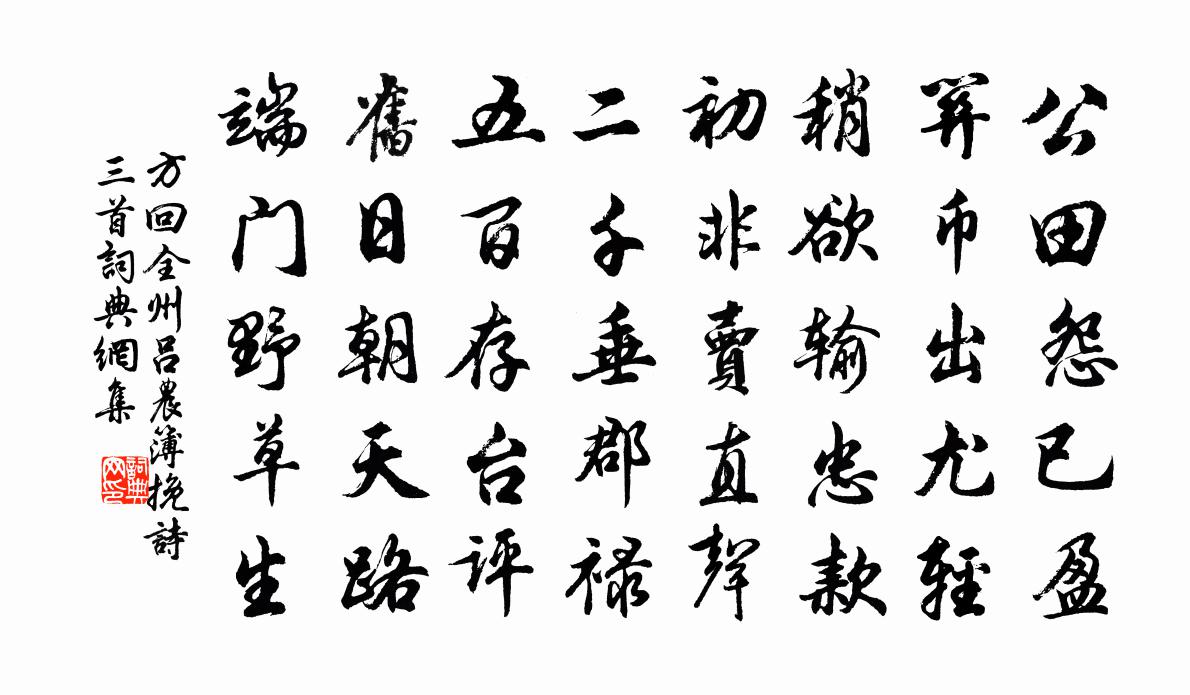 公田怨已盈
币出尤輕
稍欲输忠款
初非賣直聲
二千垂郡禄
五百存台评
舊日朝天路
端门野草生
方回全州呂農簿挽詩
三首詞典網集
詞典网印